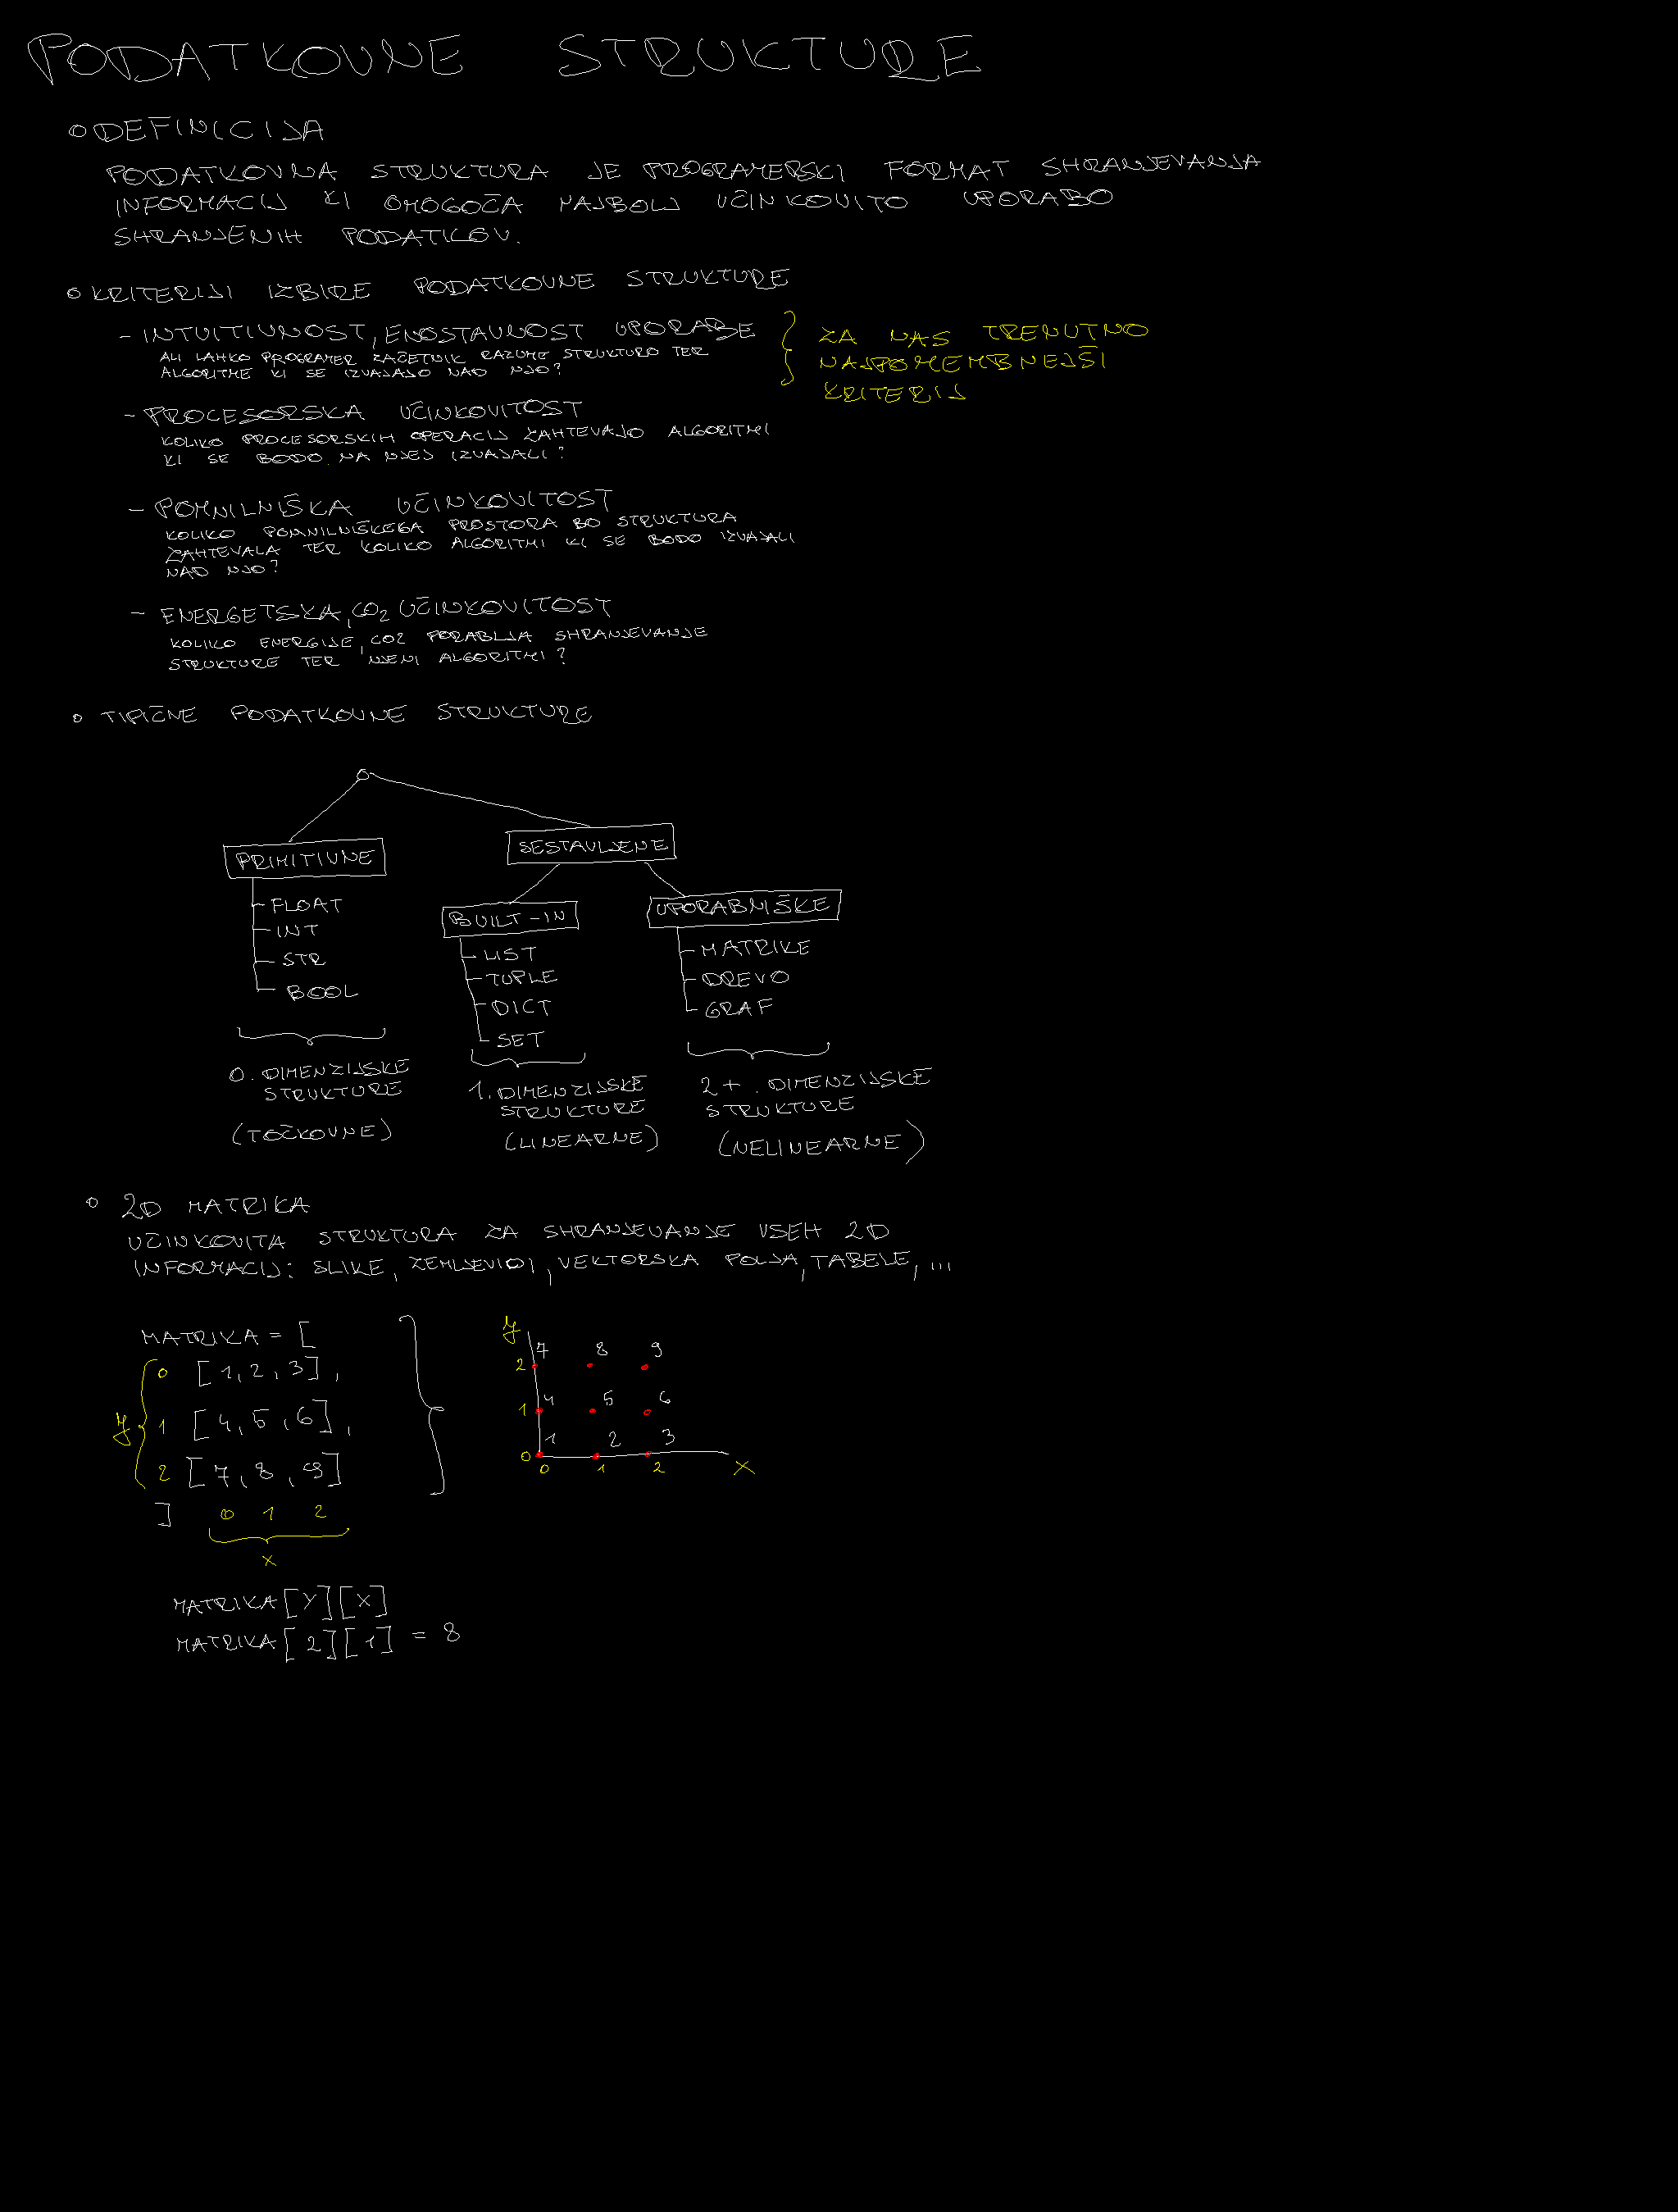 PODATKOVNE STRUKTURE
DEFINICIJA
PODATKOVNA STRUKTURA JE PROGRAMERSKI FORMAT SHRANJEVANJA
INFORMACIJ KI OMOGOČA NAJBOLJ UČINKOVITO UPORABO
SHRANJENIH PODATKOV.
KRITERIJI IZBIRE PODATKOVNE STRUKTURE
- INTUITIVNOST, ENOSTAVNOST UPORABE
ALI LAHKO PROGRAMER ZAČETNIK RAZUME STRUKTURO TER
ALGORITME KI SE IZVAJAJO NAD NJO?
ZA NAS TRENUTNO
NAJPOMEMBNEJŠI
KRITERIJ
- PROCESORSKA UČINKOVITOST
KOLIKO PROCESORSKIH OPERACIJ ZAHTEVAJO ALGORITMI
KI SE BODO NA NJEJ IZVAJALI?
- POMNILNIŠKA UČINKOVITOST
KOLIKO POMNILNIŠKEGA PROSTORA BO STRUKTURA
ZAHTEVALA TER KOLIKO ALGORITMI KI SE BODO IZVAJALI
NAD NJO?
- ENERGETSKA, CO2 UČINKOVITOST
KOLIKO ENERGIJE, CO2 PORABLJA SHRANJEVANJE
STRUKTURE TER NJENI ALGORITMI?
TIPIČNE PODATKOVNE STRUKTURE
PRIMITIVNE
FLOAT
INT
STR
BOOL
0. DIMENZIJSKE
STRUKTURE
(TOČKOVNE)
SESTAVLJENE
BUILT-IN
LIST
TUPLE
DICT
SET
1. DIMENZIJSKE
STRUKTURE
(LINEARNE)
UPORABNIŠKE
MATRIKE
DREVO
GRAF
2+. DIMENZIJSKE
STRUKTURE
(NELINEARNE)
2D MATRIKA
UČINKOVITA STRUKTURA ZA SHRANJEVANJE VSEH 2D
INFORMACIJ: SLIKE, ZEMLJEVIDI, VEKTORSKA POLJA, TABELE, ...
MATRIKA = [
0 [1, 2, 3],
y 1 [4, 5, 6],
2 [7, 8, 9]
] 0 1 2
x
y
7 8 9
2
4 5 6
1
1 2 3
0
0 1 2 x
MATRIKA[Y][X]
MATRIKA[2][1] = 8